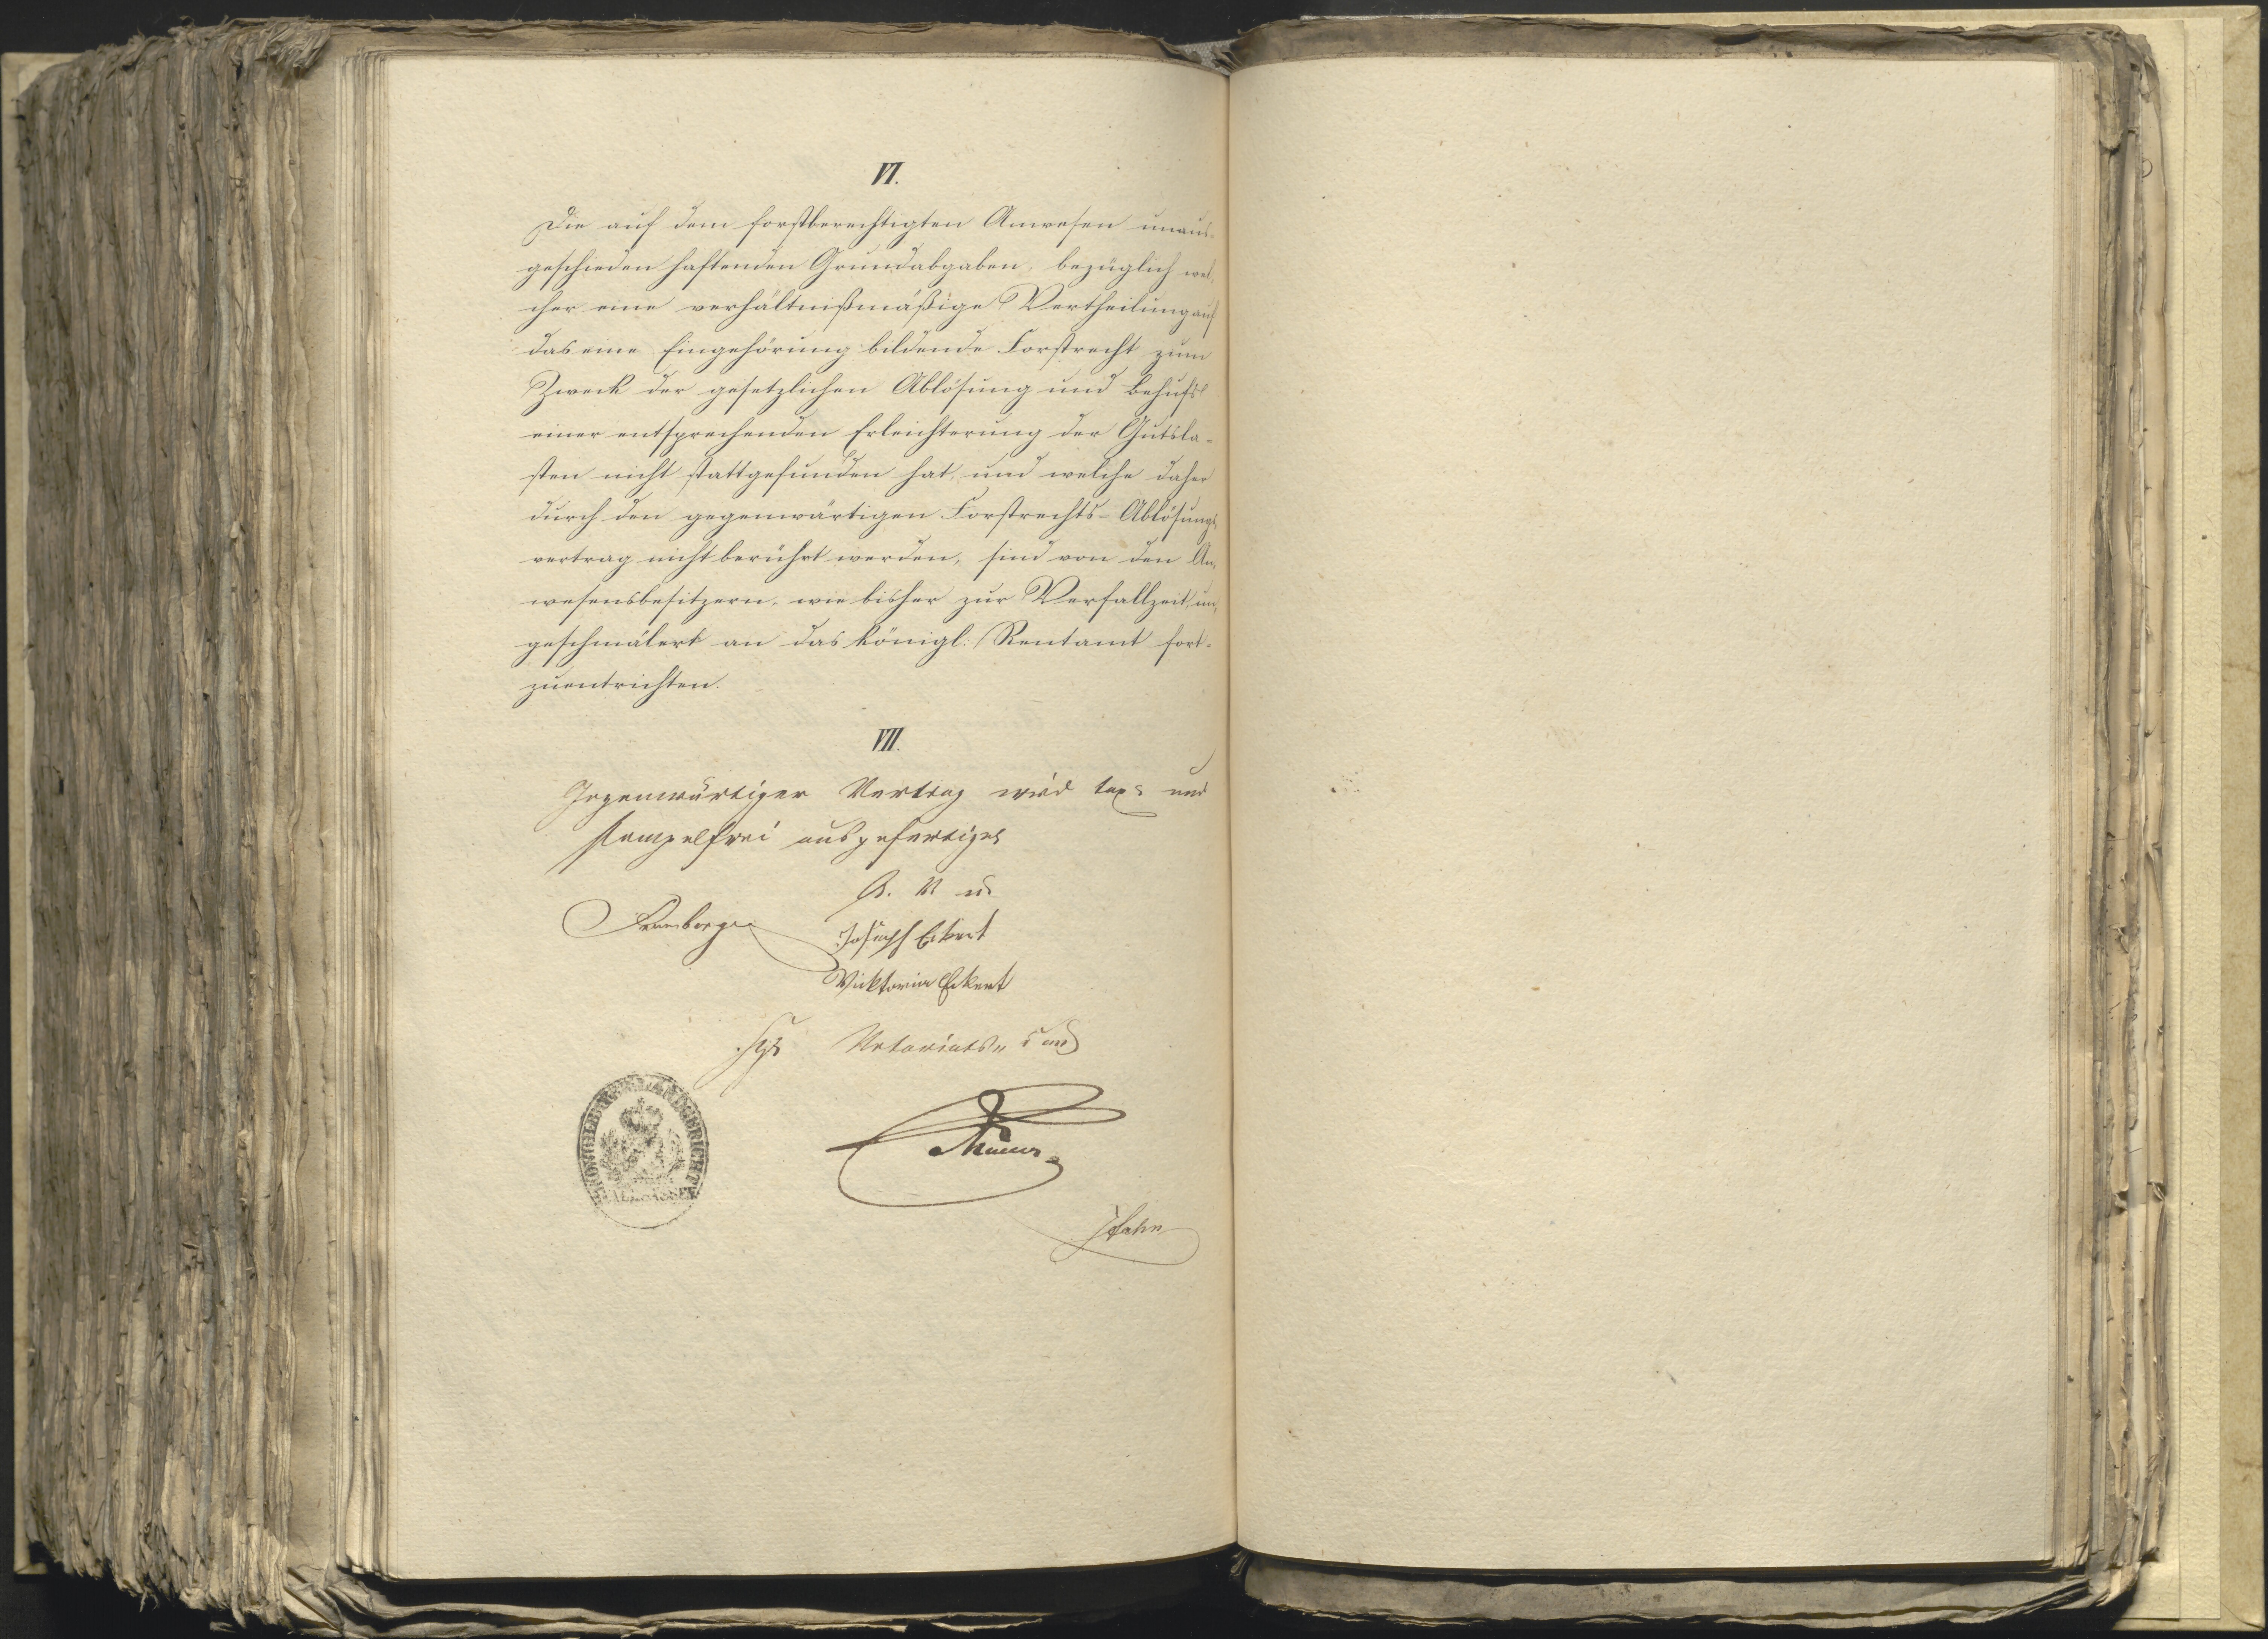 VI.
Die auf dem forstberechtigten Anwesen unaus-
geschieden haftenden Grundabgaben, bezüglich wel-
cher eine verhältnißmäßige Vertheilung auf
das eine Eingehörung bildende Forstrecht zum
Zweck der gesetzlichen Ablösung und Behufs
einer entsprechenden Erleichterung der Gutsla-
sten nicht stattgefunden hat, und welche daher
durch den gegenwärtigen Forstrechts-Ablösungs-
vertrag nicht berührt werden, sind von den An-
wesensbesitzern, wie bisher zur Verfallzeit, un-
geschmälert an das königl: Rentamt fort-
zuentrichten.
VII.
Gegenwärtiger Vertrag wird tax= und
stempelfrei ausgefertiget
G. V. u.
Joseph Eckert
Viktoria Eckert
KÖNIGL. BAYER. LANDGERICHT